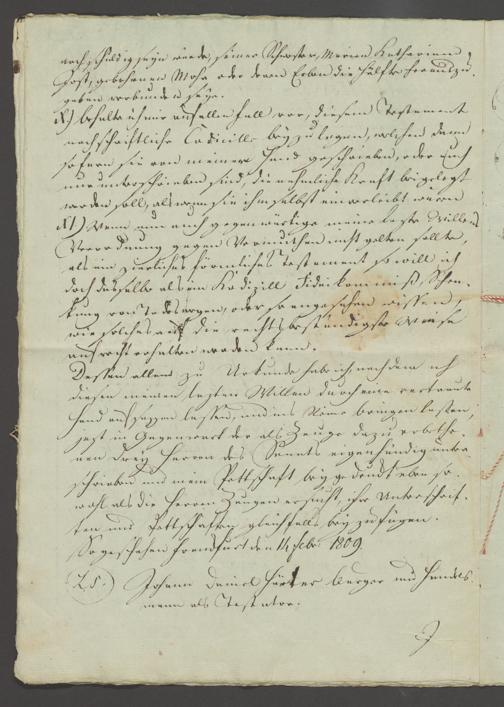 noch schuldig seyn würde, seiner Schwester, Maria Katharina
Jost, gebohrnen Mohr oder deren Erben die Hälfte heraus zu
geben verbunden seye.
X) behalte ich mir auf allen Fall vor, diesem Testament
noch schriftliche Codicille beyzulegen, welchen dann
sofern sie von meiner Hand geschrieben, oder auch
nur unterschrieben sind, die nehmliche Kraft beygelegt
werden soll, als wann sie ihm selbst einverleibt wären
XI) Wenn nun auch gegenwärtige meine letzte Willens
Verordnung gegen Vermuthen nicht gelten sollte,
als ein zierliches förmliches Testament so will ich
doch dasselbe als ein Kodizill Fideikommiß, Schen-
kung von Todes wegen, oder so angesehen wissen,
wie solches auf die rechtsbeständigste Weise
aufrecht erhalten werden kann.
Dessen allem zu Urkunde hab ich nachdem ich
diesen meinen letzten Willen durch eine vertraute
Hand aufsezzen lassen, und ins Reine bringen lassen,
jezt in Gegenwart der als Zeuge dazu erbethe-
nen drey Herren des Senats eigenhändig unter
schrieben und mein Pettschaft beygedruckt eben so
wohl als die Herren Zeugen ersucht, ihre Unterschrif-
ten und Pettschaften gleichfalls beyzufügen.
So geschehen Frankfurt den 14 Febr. 1809
L.S. Johann Daniel Burger und Handels
mann als Testator.